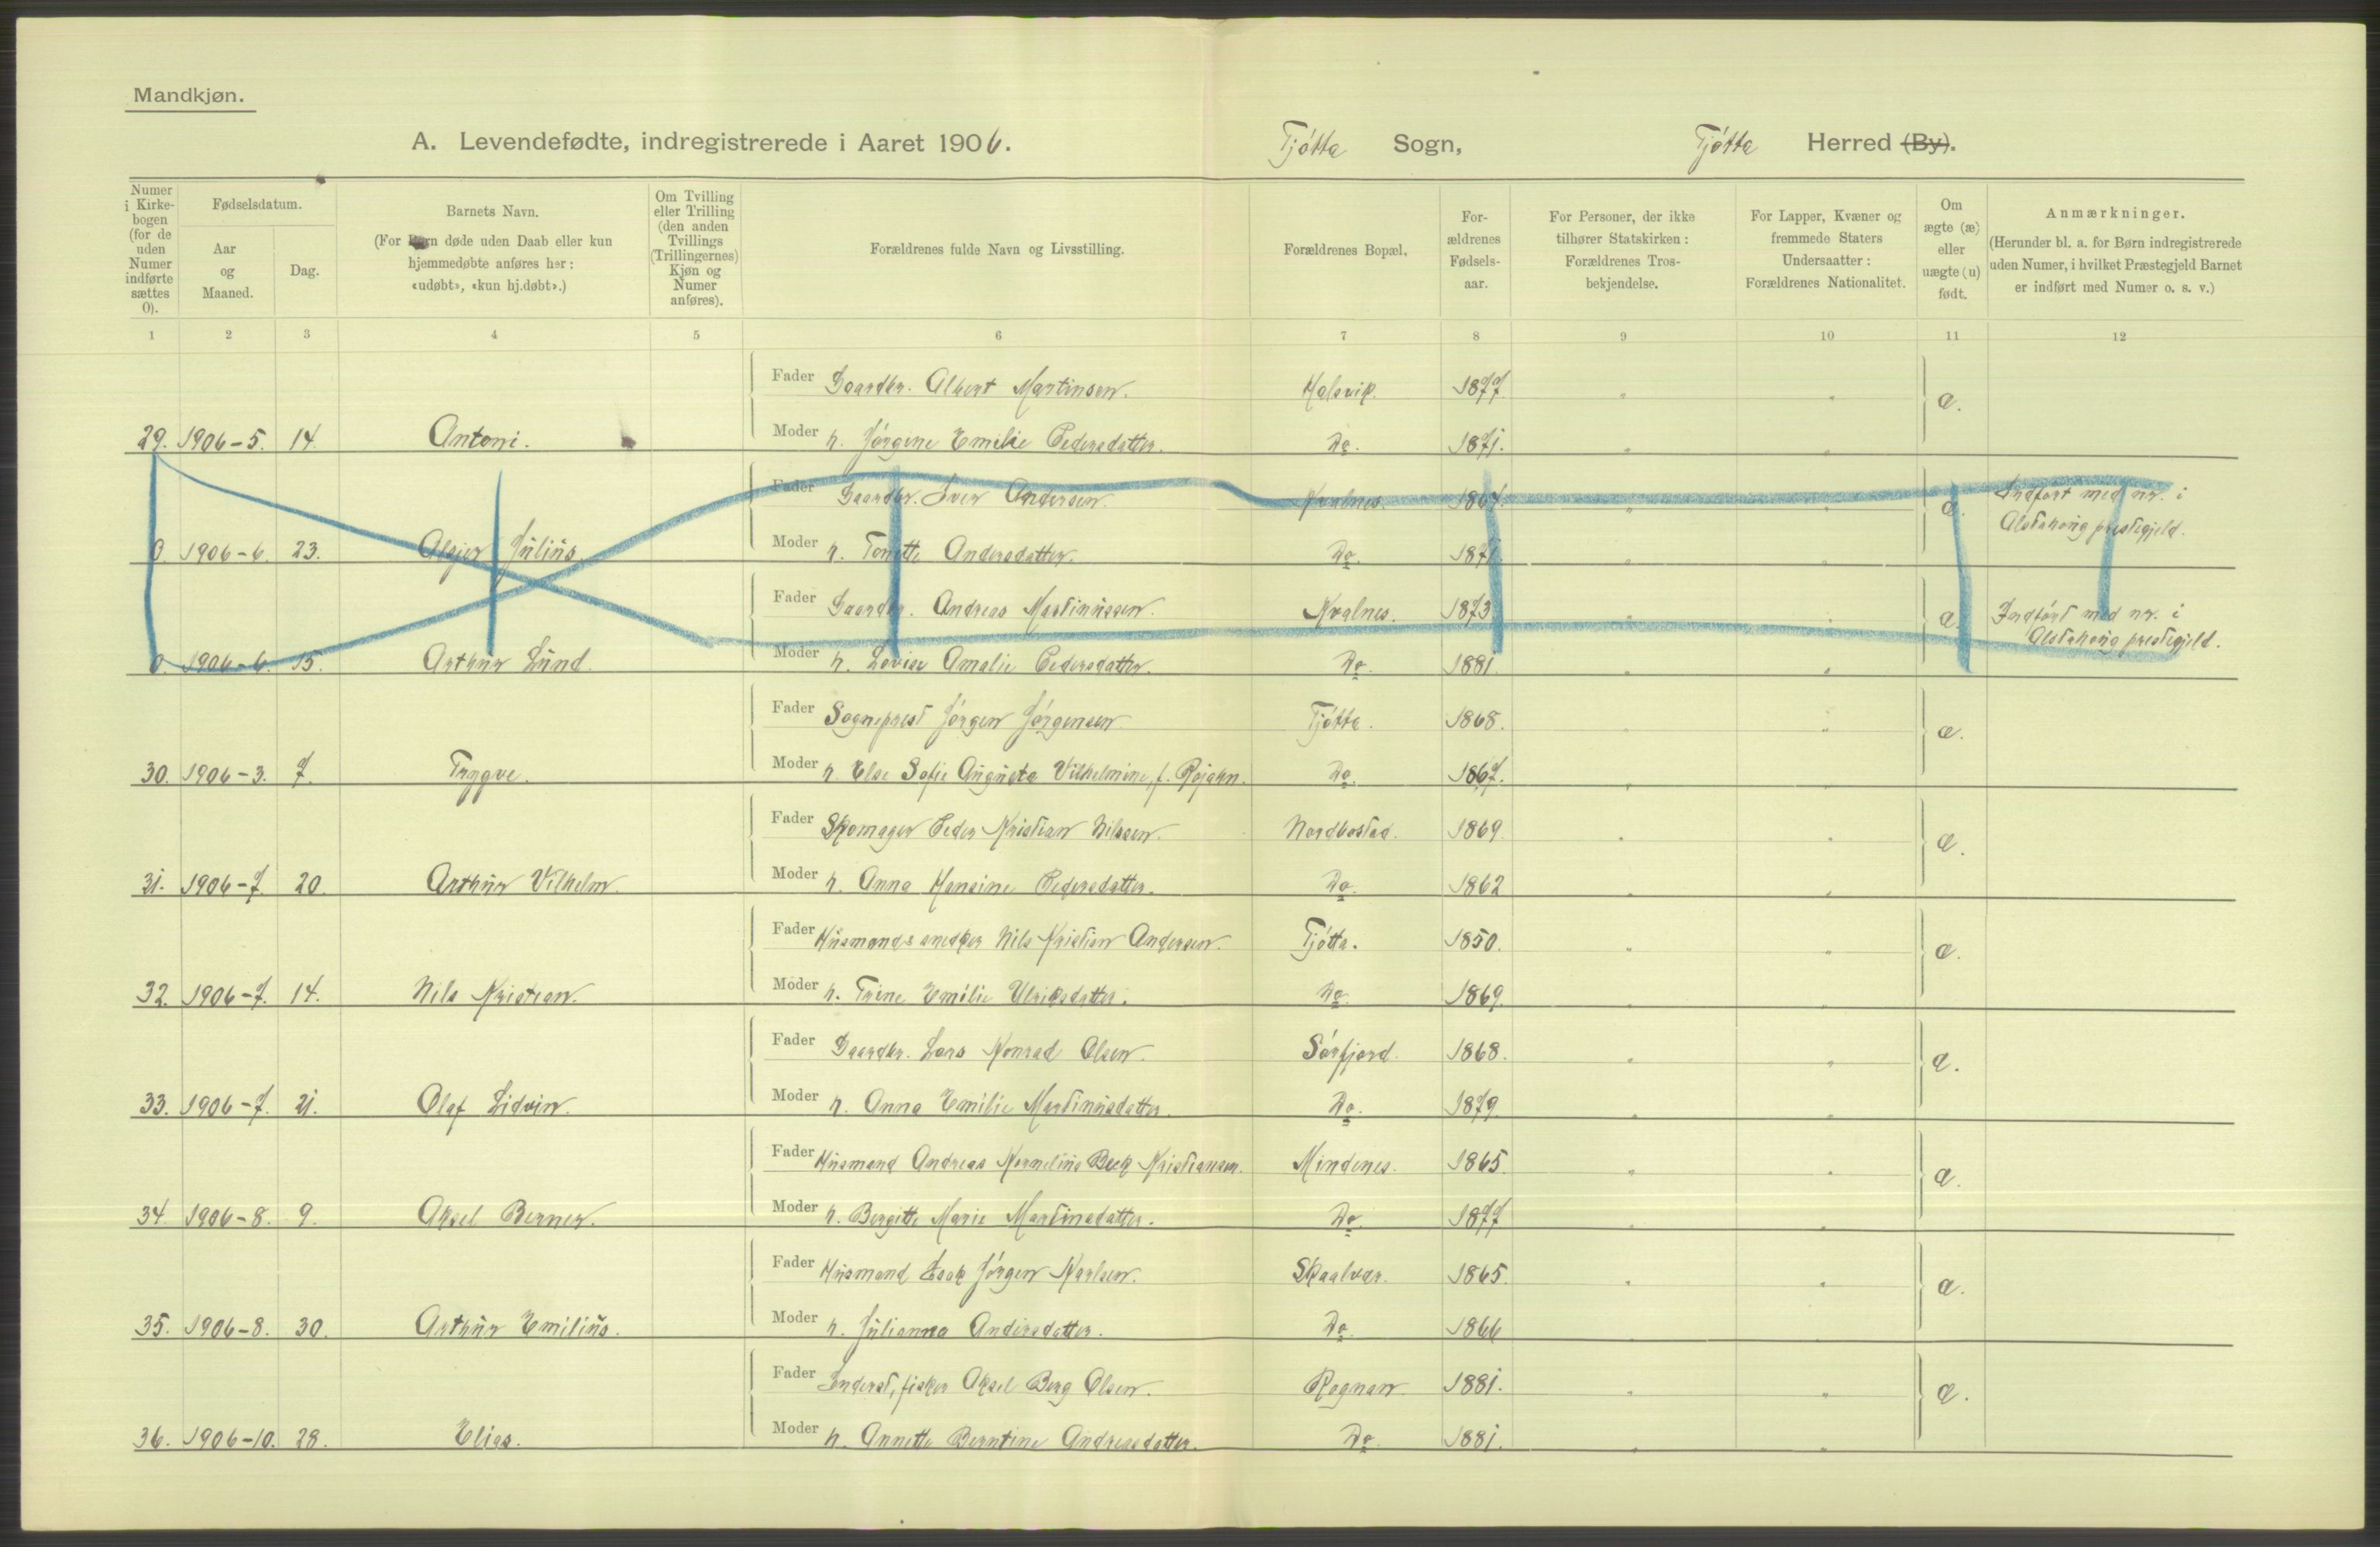 Mandkjøn.
A. Levendefødte, indregistrerede i Aaret 1906. Tjøtta Sogn, Tjøtta Herred (By).
Numer i Kirkebogen (for de uden Numer indførte sættes 0).
Fødselsdatum.
Aar og Maaned.
Dag.
Barnets Navn.
(For Børn døde uden Daab eller kun hjemmedøbte anføres her: «udøbt», «kun hj.døbt».)
Om Tvilling eller Trilling (den anden Tvillings (Trillingernes) Kjøn og Numer anføres).
Forældrenes fulde Navn og Livsstilling.
Forældrenes Bopæl.
Forældrenes Fødselsaar.
For Personer, der ikke tilhører Statskirken: Forældrenes Trosbekjendelse.
For Lapper, Kvæner og fremmede Staters Undersaatter: Forældrenes Nationalitet.
Om ægte (æ) eller uægte (u) født.
Anmærkninger.
(Herunder bl. a. for Børn indregistrerede uden Numer, i hvilket Præstegjeld Barnet er indført med Numer o. s. v.)
1 2 3 4 5 6 7 8 9 10 11 12
Fader Gaardbr. Albert Martinsen. Halsvik. 1877 " " æ.
29. 1906-5. 14. Antoni. Moder h. Jørgine Emilie Pedersdatter. Do. 1871. " "
Fader Gaardbr. Iver Andersen. Kvalnes. 1867. " " æ. Indført med nr. i
Alstahaug prestegjeld.
0. 1906-6. 23. Julius. Moder h. Tonette Andersdatter. Do. 1871. " "
Fader Gaardbr. Andreas Martinussen. Kvalnes. 1873 " " æ. Indført med nr. i
Alstahaug prestegjeld.
0. 1906-6. 15. Arthur Lund. Moder h. Lovise Amalie Pedersdatter. Do. 1881. " "
Fader Sogneprest Jørgen Jørgensen Tjøtta. 1868. " " æ.
30. 1906-3. 7. Trygve. Moder h. Else Sofie Augusta Vilhelmine, f. Rojahn. Do. 1867. " "
Fader Skomager Peder Kristian Nilssen. Nordbostad. 1869. " " æ.
31. 1906-7. 20. Arthur Vilhelm. Moder h. Anna Hansine Pedersdatter. Do. 1862 " "
Fader Husmand snedker Nils Kristian Andersen. Tjøtta. 1850. " " æ.
32. 1906-7. 14. Nils Kristian. Moder h. Trine Emilie Ulriksdatter. Do. 1869. " "
Fader Gaardbr. Lars Konrad Olsen. Sørfjord. 1868. " " æ.
33. 1906-7. 21. Olaf Lidvin. Moder h. Anna Emilie Martinusdatter. Do. 1879. " "
Fader Husmand Andreas Kornelius Beck Kristiansen. Mindenes. 1865. " " æ.
34. 1906-8. 9. Aksel Berner. Moder h. Bergitte Marie Martinsdatter. Do. 1877 " "
Fader Husmand Isak Jørgen Karlsen. Skaalvær. 1865. " " æ.
35. 1906-8. 30. Arthur Emilius. Moder h. Julianna Andersdatter. Do. 1866 " "
Fader Inderst, fisker Aksel Berg Olsen. Rognan. 1881. " " æ.
36. 1906-10. 28. Elias. Moder h. Annette Berntine Andreasdatter. Do. 1881. " "